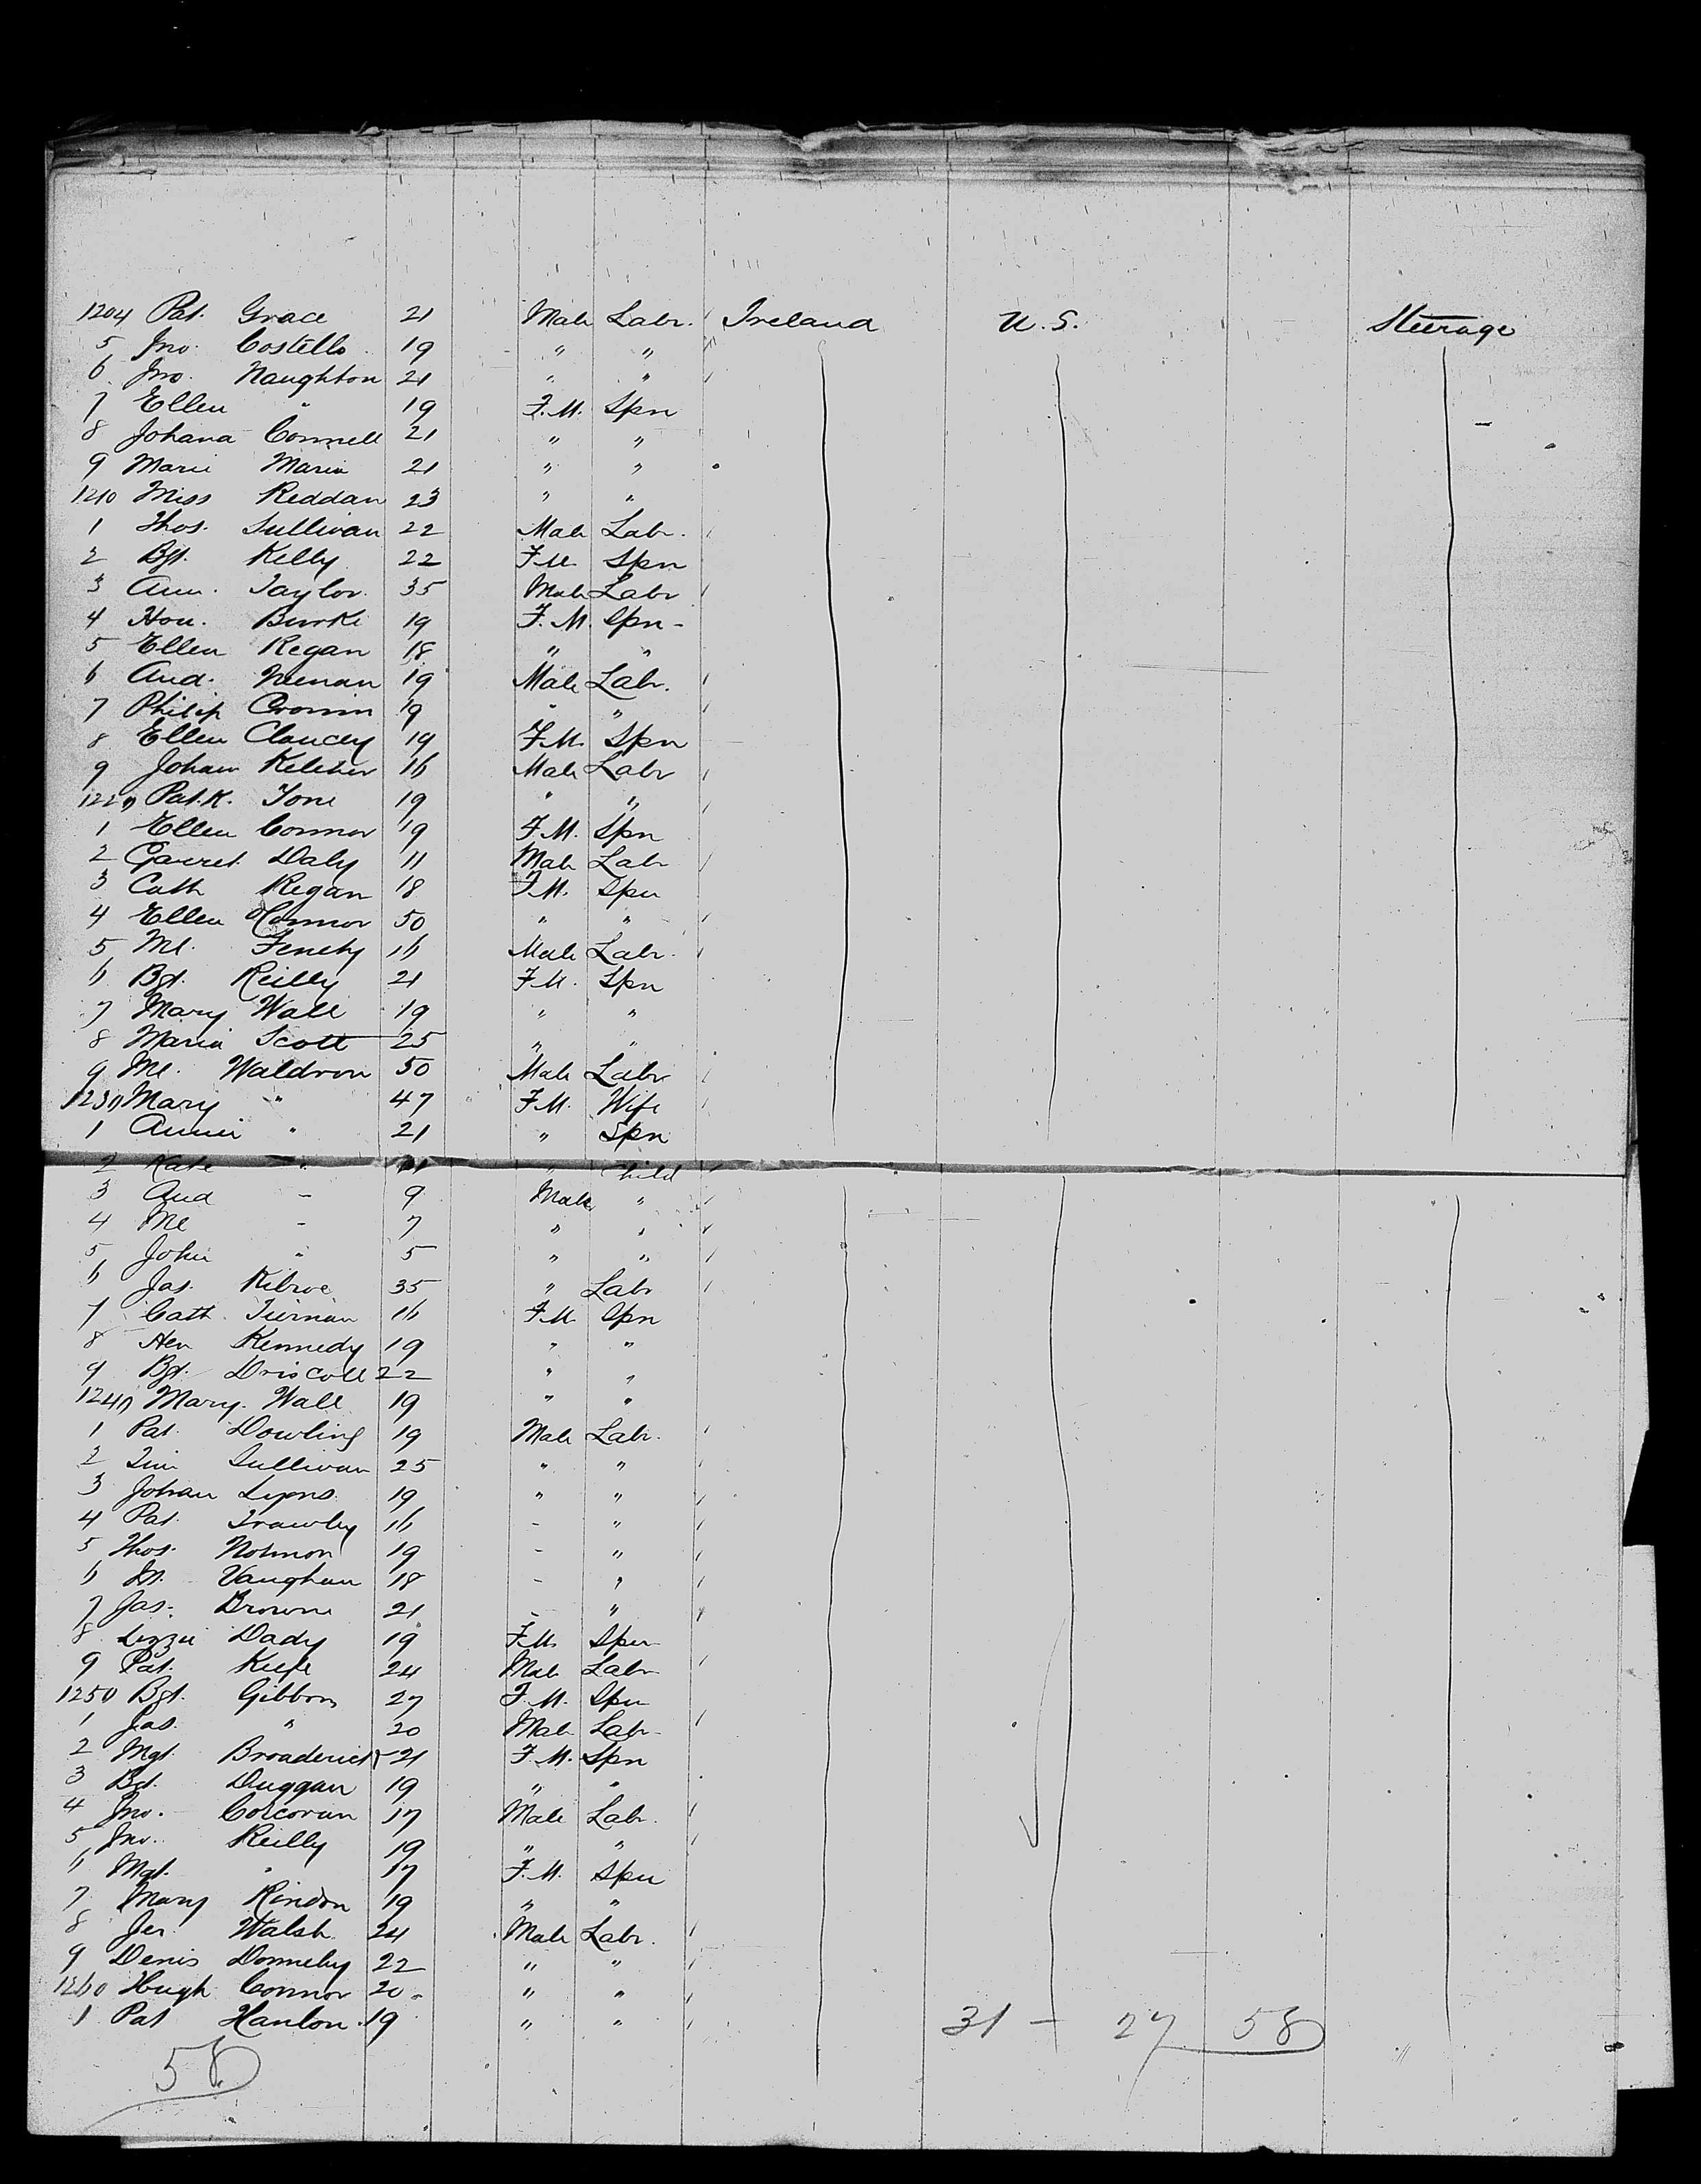 1204 Pat. Grace 21 Male Labr. Ireland U.S. Steerage
5 Jno. Costello 19 " "
6 Jno. Naughton 21 " "
7 Ellen " 19 F.M. Spn
8 Johana Connell 21 " "
9 Marie Maria 21 " "
1210 Miss Reddan 23 " "
1 Thos. Sullivan 22 Male Labr.
2 Bgt. Kelly 22 F.M. Spn
3 Taylor. 35 Male Labr
4 Hon. Burke 19 F.M. Spn -
5 Ellen Regan 18 " "
6 And. 19 Male Labr.
7 Philip Cronin 19 " "
8 Ellen Clancey 19 F.M. Spn
9 Johan Keleher 16 Male Labr
1220 Pat.K. Tone 19 " "
1 Ellen Connor 19 F.M. Spn
2 Garret Daly 11 Male Labr
3 Cath Regan 18 F.M. Spn
4 Ellen O'Connor 50 " "
5 Ml. 16 Male Labr.
6 Bgt. Reilly 21 F.M. Spn
7 Mary Wall 19 " "
8 Maria Scott 25 " "
9 Ml. Waldron 50 Male Labr
1230 Mary " 47 F.M. Wife
1 Annie " 21 " Spn
2 Kate " 11 " Child
3 And - 9 Male "
4 Ml - 7 " "
5 John " 5 " "
6 Jas. Kilroe 35 " Labr
7 Cath. Tiernan 16 F.M. Spn
8 Hen Kennedy 19 " "
9 Bgt. Driscoll 22 " "
1240 Mary. Wall 19 " "
1 Pat. Dowling 19 Male Labr.
2 Tim Sullivan 25 " "
3 Johan Lyons 19 " "
4 Pat. 16 - "
5 Thos. 19 - "
6 Vaughan 18 - "
7 Jas. Browne 21 - "
8 Lizzie Dady 19 F.M. Spn
9 Pat. Keefe 24 Male Labr
1250 Bgt. Gibbons 27 F.M. Spn
1 Jas. " 20 Male Labr
2 Mgt. Broaderick 21 F.M. Spn
3 Bgt. Duggan 19 " "
4 Jno. Corcoran 17 Male Labr.
5 Jno. Reilly 19 " "
6 Mgt. " 17 F.M. Spn
7 Mary Rindon 19 " "
8 Jer. Walsh 24 Male Labr.
9 Denis 22 " "
1260 Hugh Connor 20 " "
1 Pat Hanlon 19 " " 31 - 27 58
58